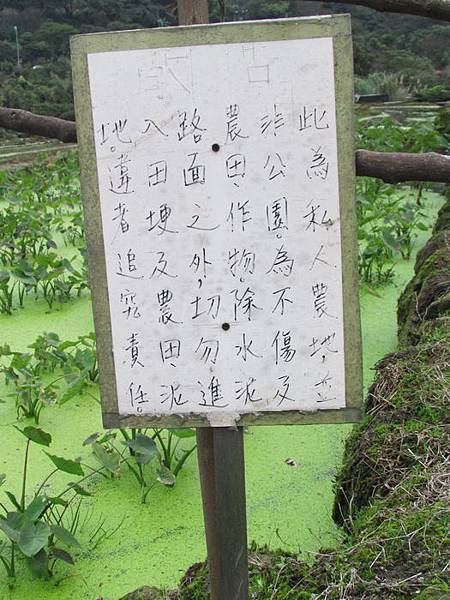 此為私人農地,並
非公園。為不傷及
農田、作物,除水泥
路面之外,切勿進
入田埂及農田、泥
地。違者追究責任。